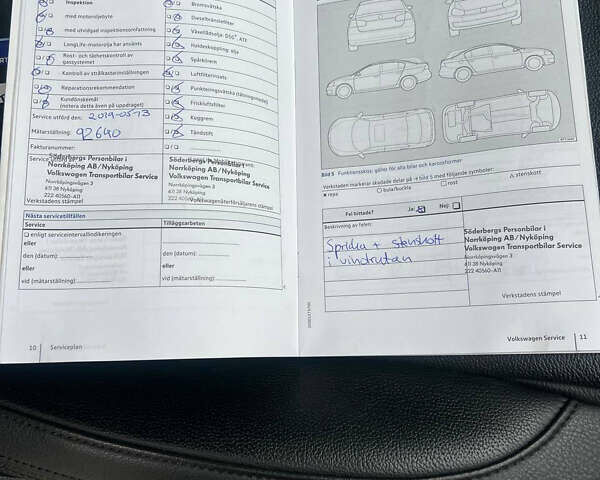 Inspektion
med motoroljebyte
med utvidgad inspektionsomfattning
LongLife-motorolja har använts
Rost- och täthetskontroll av
gassystemet
Kontroll av strålkastarinställningen
Reparationsrekommendation
Kundönskemål
(notera detta även på uppdraget)
Service utförd den: 2019-05-13
Mätarställning: 92640
Fakturanummer:
Service utförd av
Söderbergs Personbilar i
Norrköping AB/Nyköping
Volkswagen Transportbilar Service
Norrköpingsvägen 3
611 38 Nyköping
222 40560-A11
Verkstadens stämpel
Bromsvätska
Dieselbränslefilter
Växellådsolja: DSG®, ATF
Haldexkoppling: olja
Spärkörem
Luftfilterinsats
Punkteringsvätska (tätningsmedel)
Friskluftsfilter
Kuggrem
Tändstift
Söderbergs Personbilar i
Norrköping AB/Nyköping
Volkswagen Transportbilar Service
Norrköpingsvägen 3
611 38 Nyköping
222 40560-A11
Volkswagenåterförsäljarens stämpel
Nästa servicetillfällen
Service
Tilläggsarbeten
enligt serviceintervallindikeringen
eller
den (datum):
den (datum):
eller
eller
vid (mätarställning):
vid (mätarställning):
10 Serviceplan
Bild 5 Funktionsskiss: gäller för alla bilar och karossformer
Verkstaden markerar skadade delar på → bild 5 med följande symboler:
× repa
○ bula/buckla
□ rost
△ stenskott
Fel hittade?
Ja:
Nej:
Beskrivning av felen:
Spricka + stenskott
i vindrutan
Söderbergs Personbilar i
Norrköping AB/Nyköping
Volkswagen Transportbilar Service
Norrköpingsvägen 3
611 38 Nyköping
222 40560-A11
Verkstadens stämpel
Volkswagen Service 11